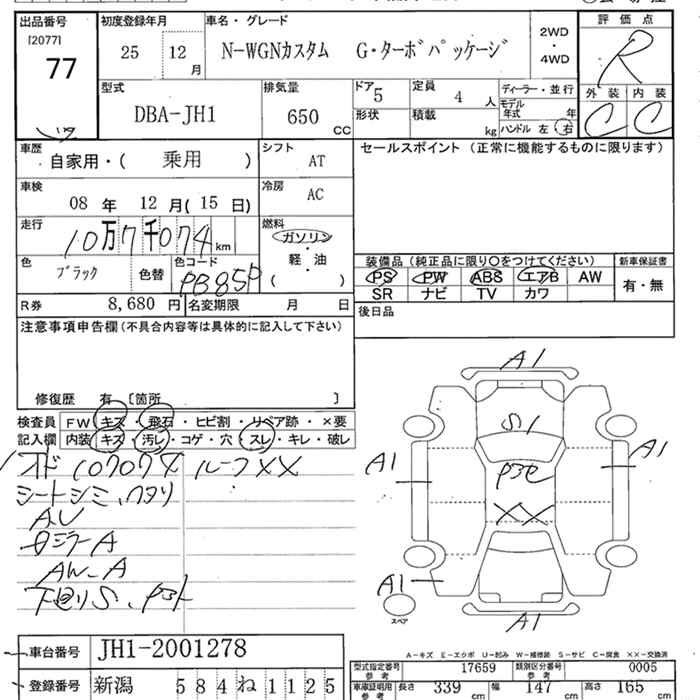 出品番号 初度登録年月 車名・グレード 評価点
[2077]
77
25 12月 N-WGNカスタム G・ターボパッケージ 2WD・4WD R
型式 排気量 ドア 5 定員 4人 ディーラー・並行 外装 内装
DBA-JH1 650cc 形状 積載 kg モデル年式 年 C C
ハンドル 左 右
車歴 自家用・( 乗用 ) シフト AT セールスポイント(正常に機能するものに限ります)
車検 08年 12月(15日) 冷房 AC
走行 10万7千074km 燃料 ガソリン・軽・油 ( )
色 ブラック 色替 色コード PB85P
装備品(純正品に限り○をつけてください) 新車保証書
PS PW ABS エアB AW 有・無
SR ナビ TV カワ
R券 8,680円 名変期限 月 日 後日品
注意事項申告欄(不具合内容等は具体的に記入して下さい)
修復歴 有 [箇所 ]
検査員 FW キズ・飛石・ヒビ割・リペア跡・×要
記入欄 内装 キズ・汚レ・コゲ・穴・スレ・キレ・破レ
107074 ルーフXX
シートシミ、
A
AW-A
下廻りS、
A1
S1
A1
A1
XX
A1
スペア
A1
A-キズ E-エクボ U-凹み W-補修跡 S-サビ C-腐食 XX-交換済
車台番号 JH1-2001278
登録番号 新潟 584 ね 1125
型式指定番号 参考 17659 類別区分番号 参考 0005
車庫証明用 参考 長さ 339cm 幅 147cm 高さ 165cm